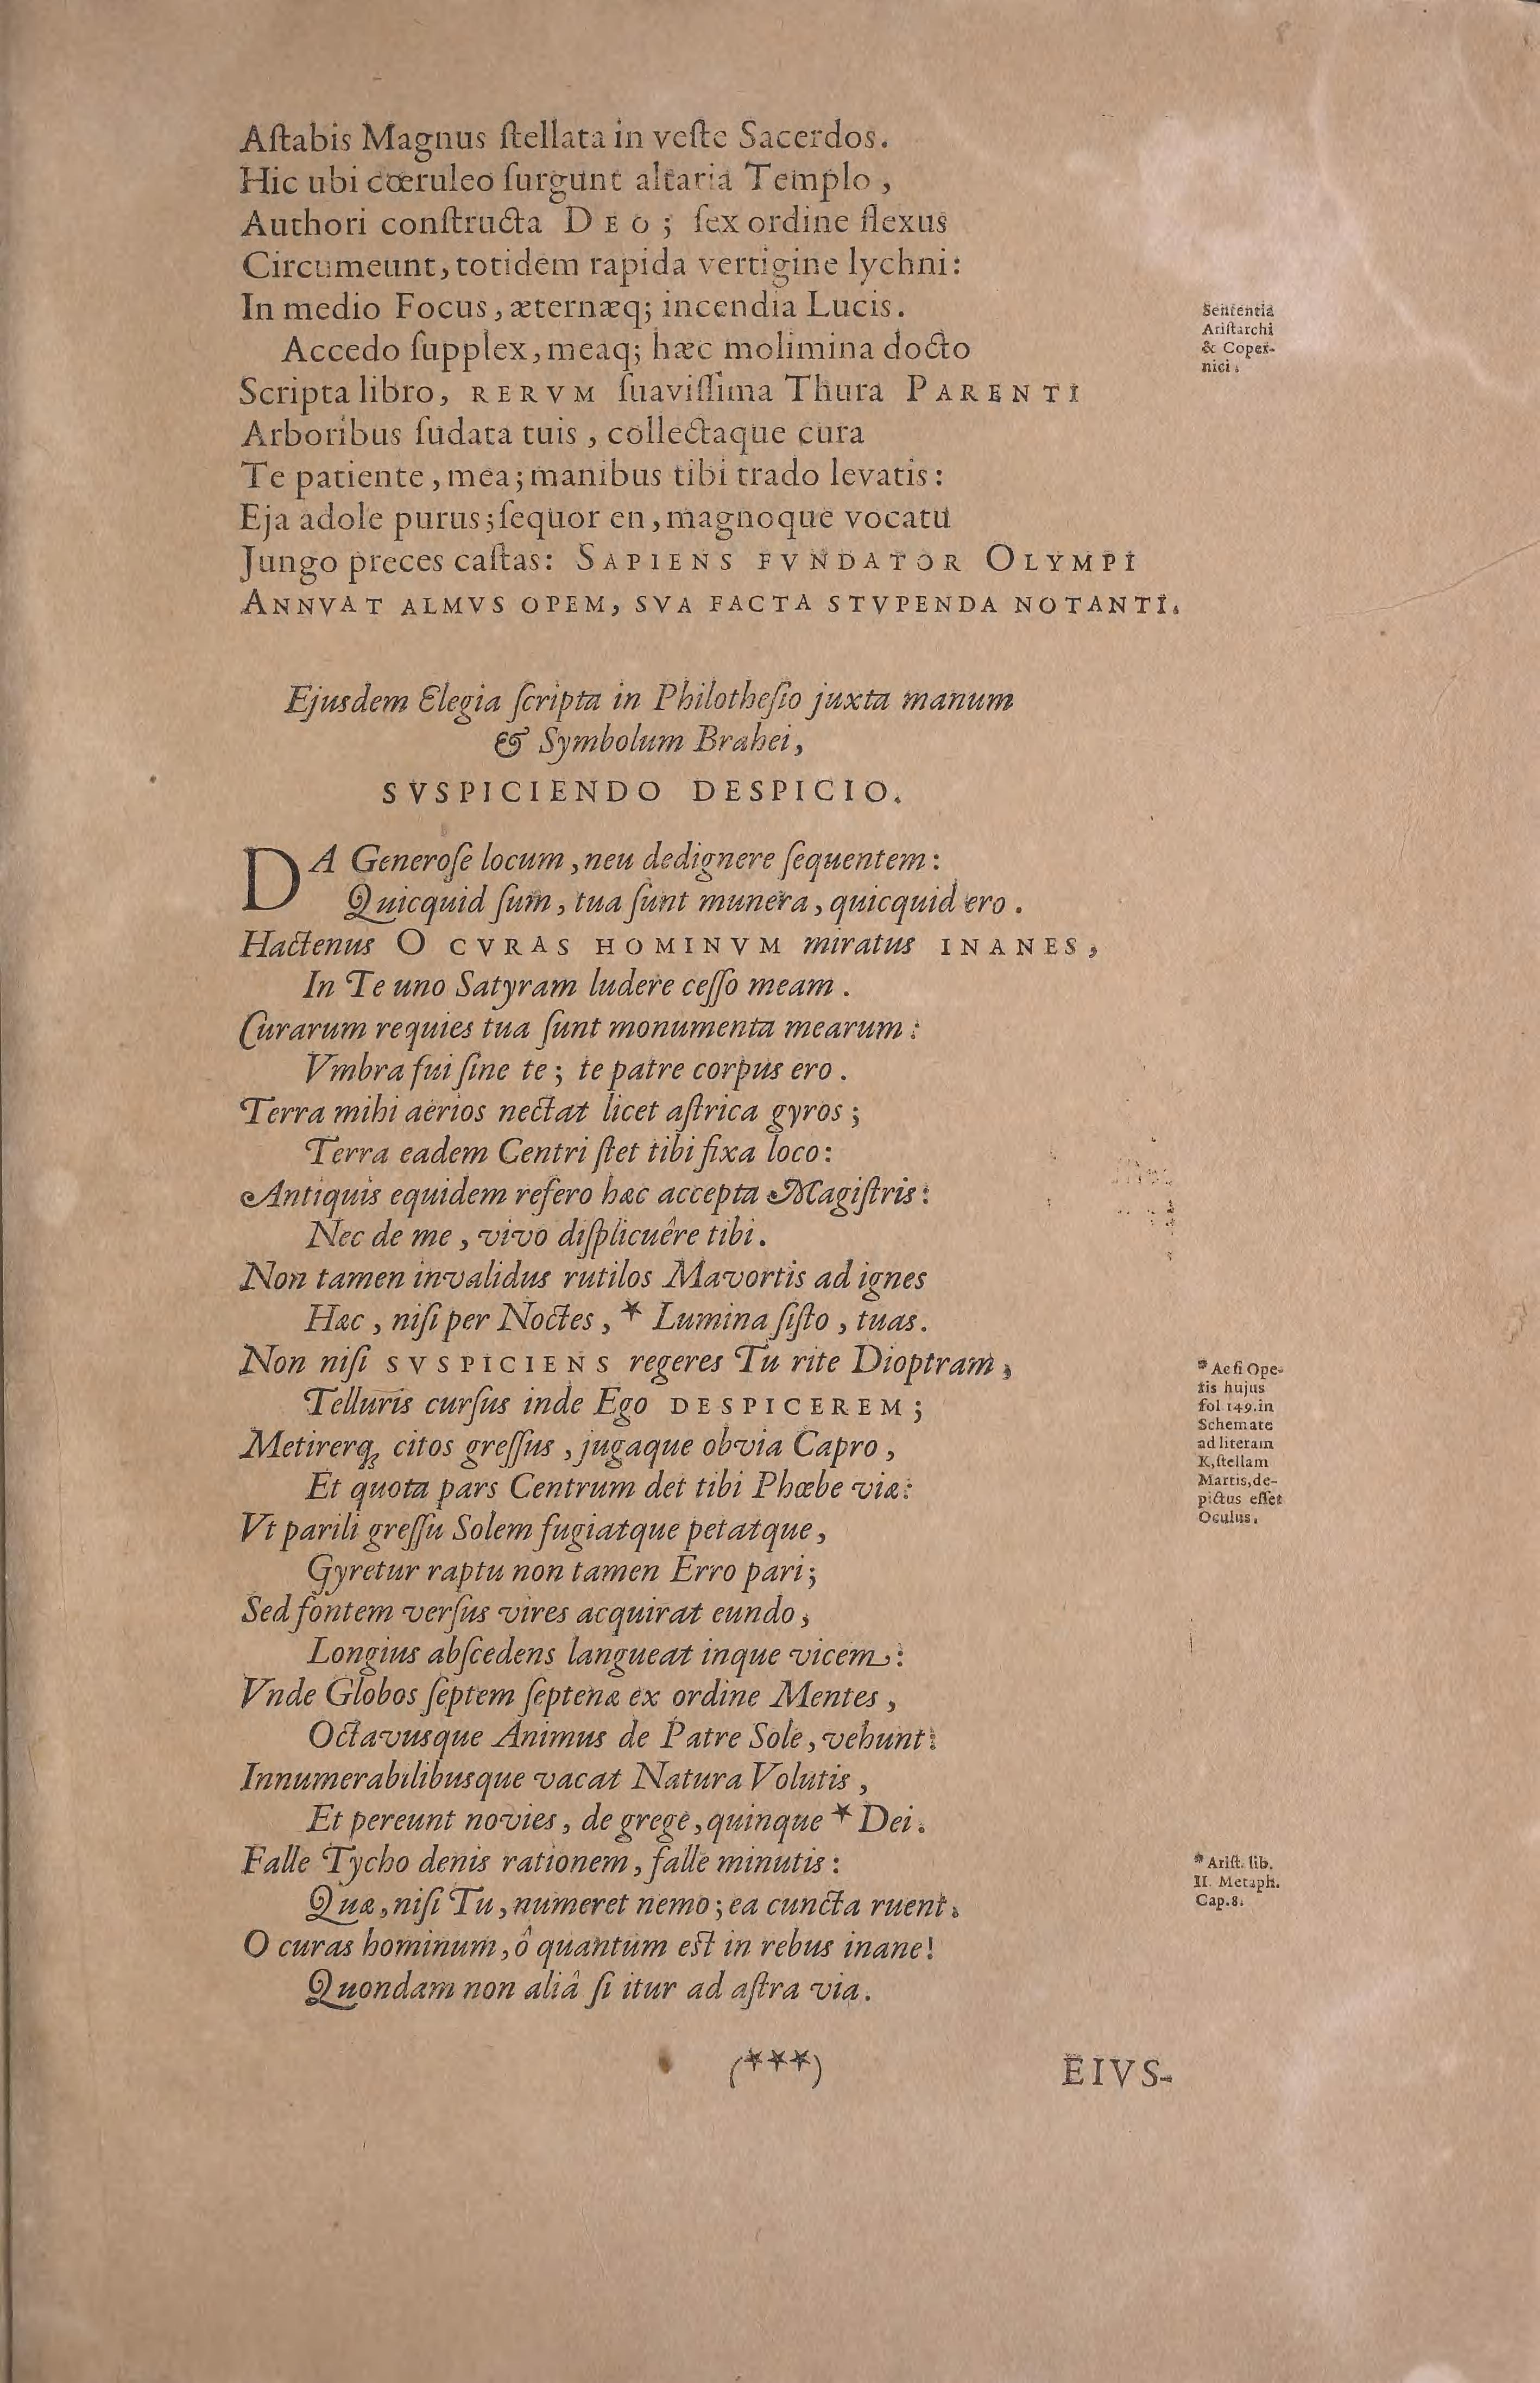 Aſtabis Magnus ſtellata in veſte Sacerdos.
Hic ubi cœruleo ſurgunt altaria Templo,
Authori conſtructa DEO; ſex ordine flexus
Circumeunt, totidem rapida vertigine lychni:
In medio Focus, æternæq; incendia Lucis.
Sententia
Ariſtarchi
& Coper-
nici.
Accedo ſupplex, meaq; hæc molimina docto
Scripta libro, RERVM ſuaviſſima Thura PARENTI
Arboribus ſudata tuis, collectaque cura
Te patiente, mea; manibus tibi trado levatis:
Eja adole purus; ſequor en, magnoque vocatu
Jungo preces caſtas: SAPIENS FVNDATOR OLYMPI
ANNVAT ALMVS OPEM, SVA FACTA STVPENDA NOTANTI.
Ejusdem Elegia ſcripta in Philotheſio juxta manum
& Symbolum Brahei,
SVSPICIENDO DESPICIO.
DA Generoſe locum, neu dedignere ſequentem:
Quicquid ſum, tua ſunt munera, quicquid ero.
Hactenus O CVRAS HOMINVM miratus INANES,
In Te uno Satyram ludere ceſſo meam.
Curarum requies tua ſunt monumenta mearum:
Vmbra fui ſine te; te patre corpus ero.
Terra mihi aërios nectat licet aſtrica gyros;
Terra eadem Centri ſtet tibi fixa loco:
Antiquis equidem refero hæc accepta Magiſtris:
Nec de me, vivo diſplicuêre tibi.
Non tamen invalidus rutilos Mavortis ad ignes
Hæc, niſi per Noctes, * Lumina ſiſto, tuas.
Non niſi SVSPICIENS regeres Tu rite Dioptram,
Telluris curſus inde Ego DESPICEREM;
* Ac ſi Ope-
ris hujus
fol 149. in
Schemate
ad literam
K, ſtellam
Martis, de-
pictus eſſet
Oculus.
Metirerq; citos greſſus, jugaque obvia Capro,
Et quota pars Centrum det tibi Phœbe viæ:
Vt parili greſſu Solem fugiatque petatque,
Gyretur raptu non tamen Erro pari;
Sed fontem verſus vires acquirat eundo,
Longius abſcedens langueat inque vicem:
Vnde Globos ſeptem ſeptenæ ex ordine Mentes,
Octavusque Animus de Patre Sole, vehunt:
Innumerabilibusque vacat Natura Volutis,
Et pereunt novies, de grege, quinque * Dei.
Falle Tycho denis rationem, falle minutis:
Quæ, niſi Tu, numeret nemo; ea cuncta ruent.
* Ariſt. lib.
II. Metaph.
Cap. 8.
O curas hominum, ô quantum eſt in rebus inane!
Quondam non aliâ ſi itur ad aſtra via.
(***)
EIVS-